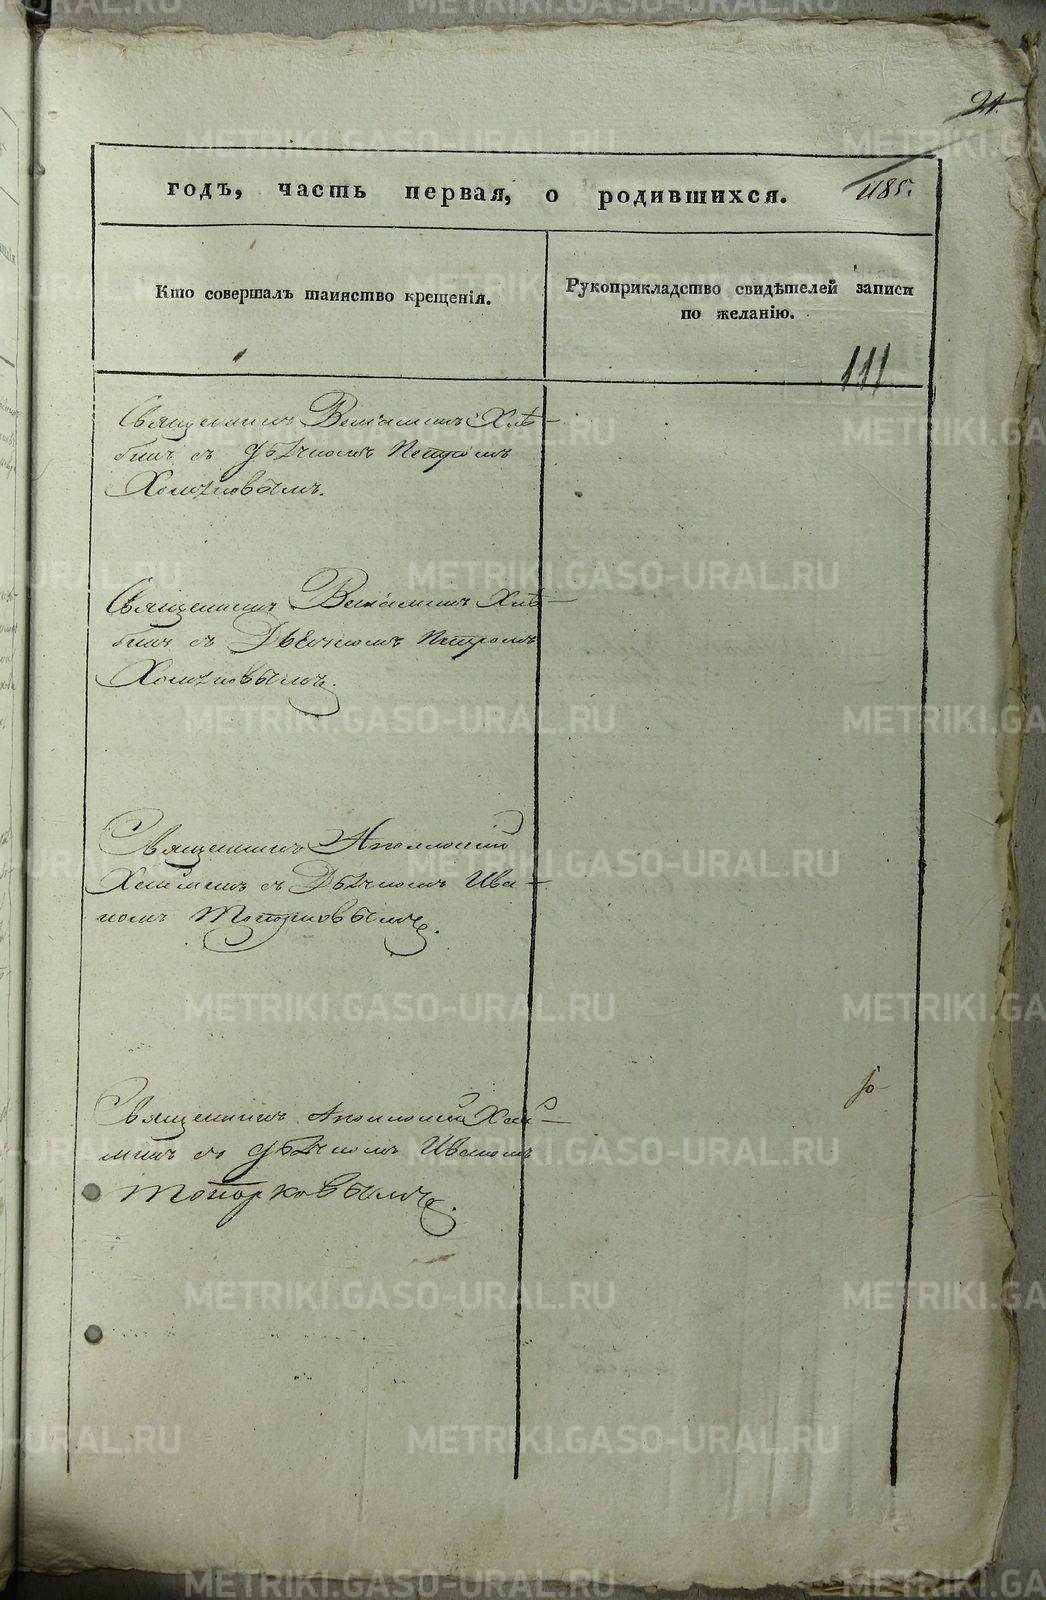 21.
годъ, часть первая, о родившихся.
485.
Кто совершалъ таинство крещенія.
Рукоприкладство свидѣтелей записи
по желанію.
111
Священникъ Веніаминъ Хлѣ-
бинъ съ Дьячкомъ Петромъ
Хомяковымъ.
Священникъ Веніаминъ Хлѣ-
бинъ съ Дьячкомъ Петромъ
Хомяковымъ.
Священникъ Аполлоній
съ Дьячкомъ Ива-
номъ Топорковымъ.
Священникъ Аполлоній
съ Дьячкомъ Иваномъ
Топорковымъ.
METRIKI.GASO-URAL.RU